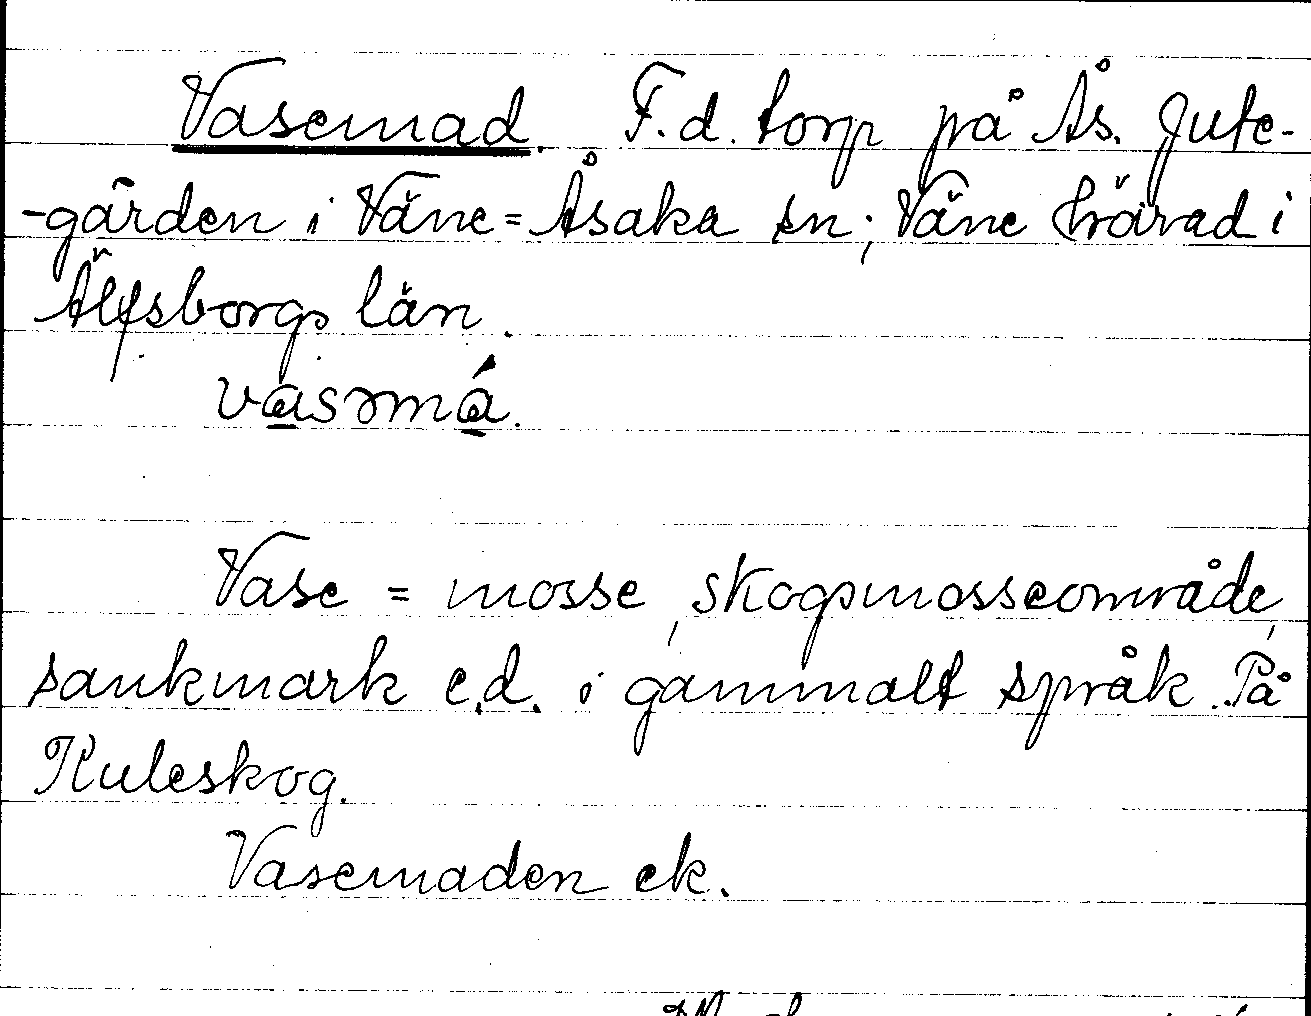 Vasemad. F.d. torp på Ås. Jute-
-gården i Väne=Åsaka sn; Väne härad i
Älfsborgs län.
vasmá.
Vase = mosse, skogsmosseområde,
sankmark e.d. i gammalt språk. På
Kuleskog.
Vasemaden ek.